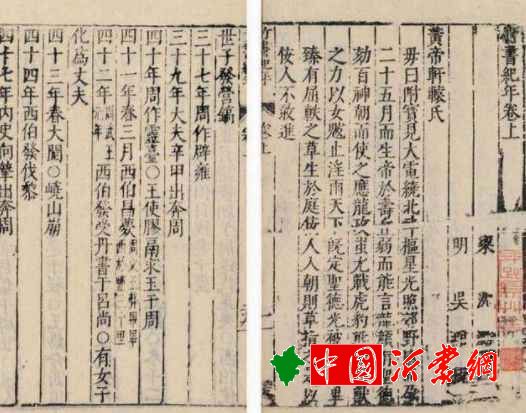 竹書紀年卷上
梁 沈
明 吳
黃帝軒轅氏
母曰附寶見大電繞北斗樞星光照郊野 孕
二十五月而生帝於壽丘弱而能言龍顏
劾百神朝而使之應龍攻蚩尤戰虎豹熊
之力以女魃止淫雨天下既定聖德光被
臻有屈軼之草生於庭佞人入朝則草指 以
佞人不敢進
世子發營鎬
三十七年周作辟雍
三十九年大夫辛甲出奔周
四十年周作靈臺○王使膠鬲求玉于周
四十一年春三月西伯昌薨
四十二年 周武王元年 西伯發受丹書于呂尚○有女子
化爲丈夫
四十三年春大閱○嶢山崩
四十四年西伯發伐黎
四十七年內史向摯出奔周
中國沂蒙網